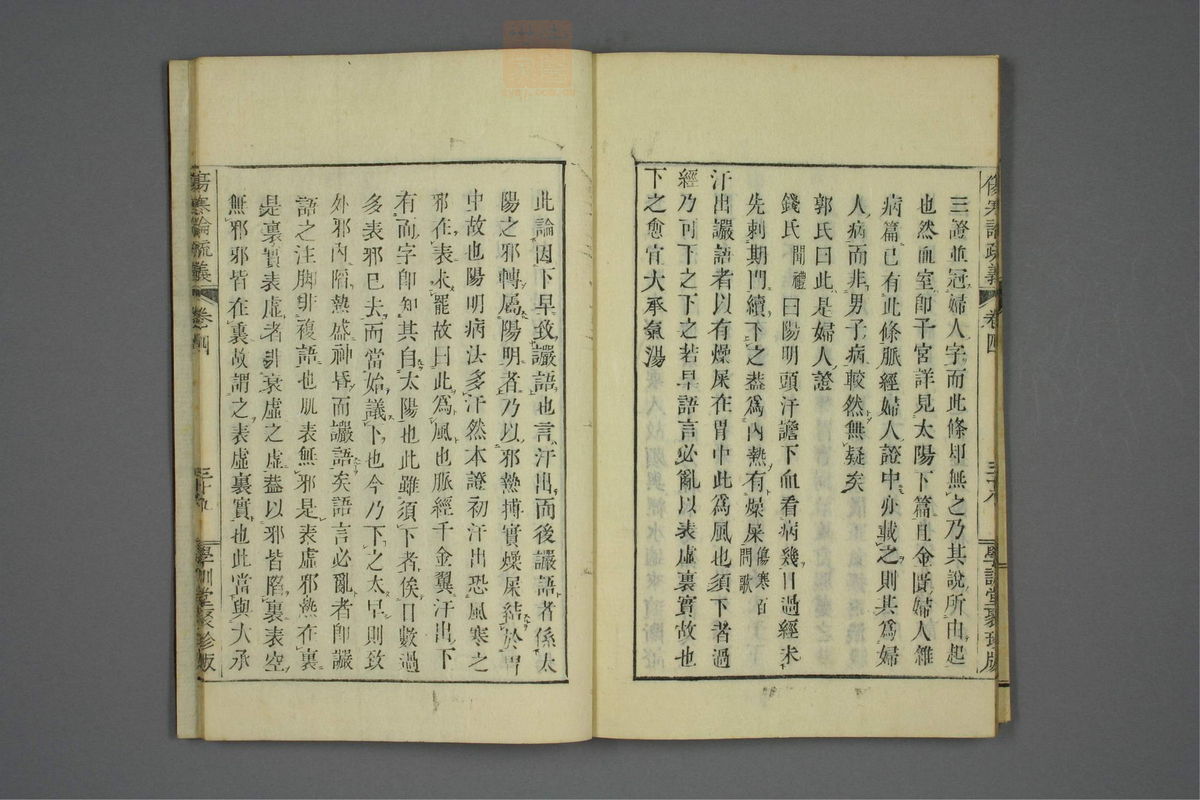 傷寒論疏義
卷四
三十八
學訓堂聚珍版
三證並冠婦人字而此條却無之乃其說所由起
也然血室卽子宮詳見太陽下篇且金匱婦人雜
病篇已有此條脈經婦人證中亦載之則其爲婦
人病而非男子病較然無疑矣
郭氏曰此是婦人證
錢氏聞禮曰陽明頭汗譫下血看病幾日過經未
先刺期門續下之葢爲內熱有燥屎傷寒百問歌
汗出讝語者以有燥屎在胃中此爲風也須下者過
經乃可下之下之若早語言必亂以表虛裏實故也
下之愈宜大承氣湯
此論因下早致讝語也言汗出而後讝語者係太
陽之邪轉屬陽明者乃以邪熱搏實燥屎結於胃
中故也陽明病法多汗然本證初汗出恐風寒之
邪在表未罷故曰此爲風也脈經千金翼汗出下
有而字卽知其自太陽也此雖須下者俟日數過
多表邪已去而當始議下也今乃下之太早則致
外邪內陷熱盛神昏而讝語矣語言必亂者卽讝
語之注脚非複語也肌表無邪是表虛邪熱在裏
是裏實表虛者非衰虛之虛葢以邪皆陷裏表空
無邪邪皆在裏故謂之表虛裏實也此當與大承
傷寒論疏義
卷四
三十九
學訓堂聚珍版